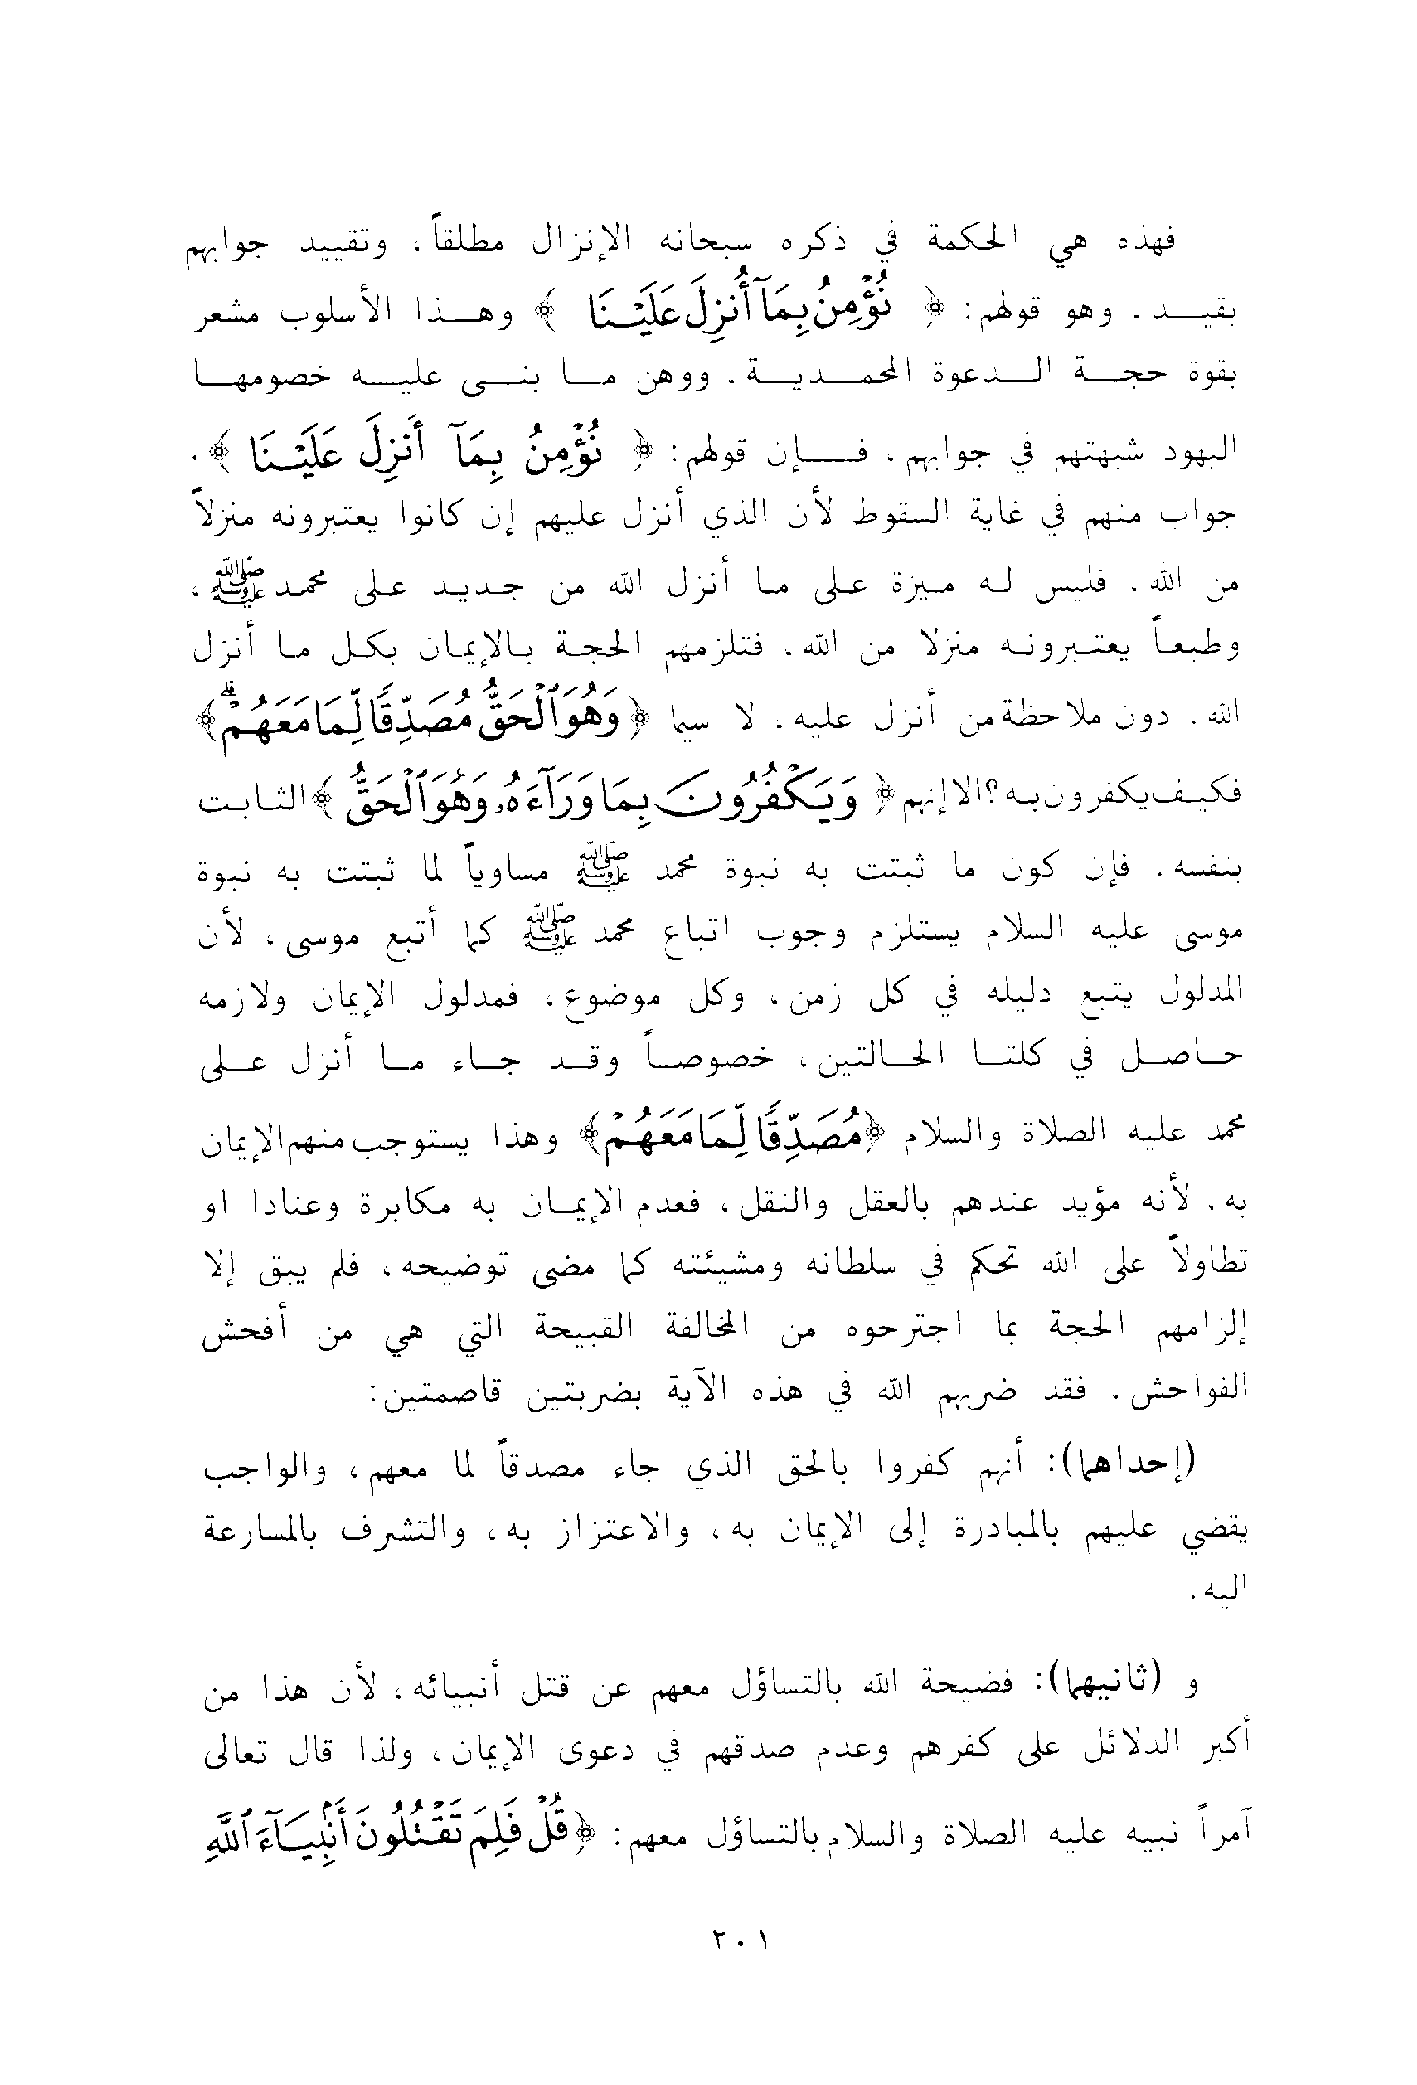 فهذه هي الحكمة في ذكره سبحانه الإنزال مطلقاً، وتقييد جوابهم
بقيد. وهو قولهم: ﴿ نُؤْمِنُ بِمَآ أُنزِلَ عَلَيْنَا ﴾ وهذا الأسلوب مشعر
بقوة حجة الدعوة المحمدية. ووهن ما بنى عليه خصومها
اليهود شبهتهم في جوابهم، فإن قولهم: ﴿ نُؤْمِنُ بِمَآ أُنزِلَ عَلَيْنَا ﴾.
جواب منهم في غاية السقوط لأن الذي أنزل عليهم إن كانوا يعتبرونه منزلاً
من الله. فليس له ميزة على ما أنزل الله من جديد على محمد ﷺ،
وطبعاً يعتبرونه منزلا من الله. فتلزمهم الحجة بالإيمان بكل ما أنزل
الله. دون ملاحظة من أنزل عليه. لا سيما ﴿وَهُوَ ٱلْحَقُّ مُصَدِّقًا لِّمَا مَعَهُمْ ۗ﴾
فكيف يكفرون به؟ الا إنهم ﴿ وَيَكْفُرُونَ بِمَا وَرَآءَهُۥ وَهُوَ ٱلْحَقُّ ﴾ الثابت
بنفسه. فإن كون ما ثبتت به نبوة محمد ﷺ مساوياً لما ثبتت به نبوة
موسى عليه السلام يستلزم وجوب اتباع محمد ﷺ كما أتبع موسى، لأن
المدلول يتبع دليله في كل زمن، وكل موضوع، فمدلول الإيمان ولازمه
حاصل في كلتا الحالتين، خصوصاً وقد جاء ما أنزل على
محمد عليه الصلاة والسلام ﴿مُصَدِّقًا لِّمَا مَعَهُمْ﴾ وهذا يستوجب منهم الإيمان
به. لأنه مؤيد عندهم بالعقل والنقل، فعدم الإيمان به مكابرة وعنادا او
تطاولاً على الله تحكم في سلطانه ومشيئته كما مضى توضيحه، فلم يبق إلا
إلزامهم الحجة بما اجترحوه من المخالفة القبيحة التي هي من أفحش
الفواحش. فقد ضربهم الله في هذه الآية بضربتين قاصمتين:
(إحداهما): أنهم كفروا بالحق الذي جاء مصدقاً لما معهم، والواجب
يقضي عليهم بالمبادرة إلى الإيمان به، والاعتزاز به، والتشرف بالمسارعة
اليه.
و (ثانيهما): فضيحة الله بالتساؤل معهم عن قتل أنبيائه، لأن هذا من
أكبر الدلائل على كفرهم وعدم صدقهم في دعوى الإيمان، ولذا قال تعالى
آمراً نبيه عليه الصلاة والسلام بالتساؤل معهم: ﴿قُلْ فَلِمَ تَقْتُلُونَ أَنۢبِيَآءَ ٱللَّهِ
٢٠١